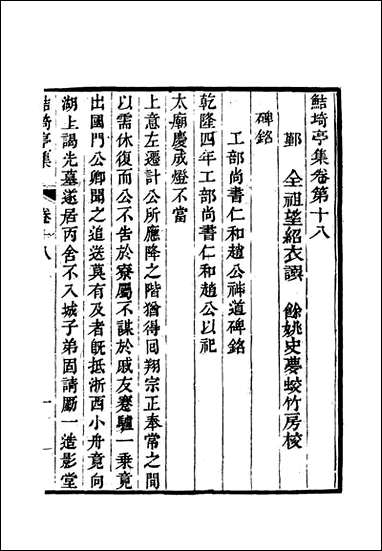 鮚埼亭集卷第十八
鄞 全祖望紹衣譔 餘姚史夢蛟竹房校
碑銘
工部尚書仁和趙公神道碑銘
乾隆四年工部尚書仁和趙公以祀
太廟慶成燈不當
上意左遷計公所應降之階猶得囘翔宗正奉常之間
以需休復而公不告於寮屬不謀於戚友蹇驢一乘竟
出國門公卿聞之追送莫有及者旣抵浙西小舟竟向
湖上謁先墓遂居丙舍不入城子弟固請勵一造影堂
鮚埼亭集 卷十八 一